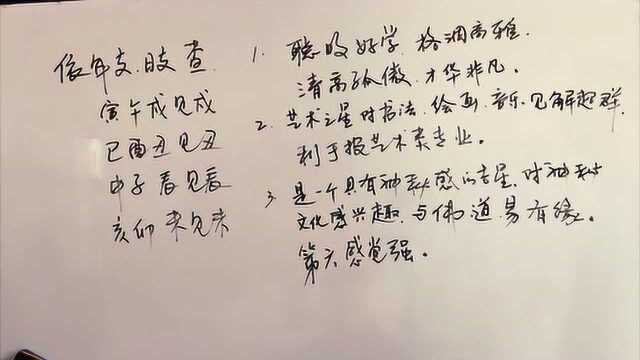 依年支.日支查
寅午戌见戌
巳酉丑见丑
申子辰见辰
亥卯未见未
1. 聪明好学.格调高雅.
清高孤傲.才华非凡.
2. 艺术之星对书法.绘画.音乐.见解超群.
利于报艺术类专业。
3. 是一个具有神秘感的吉星.对神秘
文化感兴趣.与佛道易有缘。
第六感觉强。